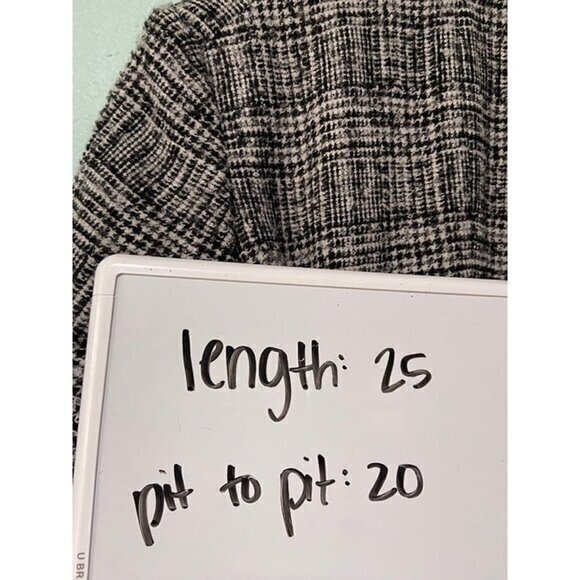 length: 25
pit to pit: 20
UBR